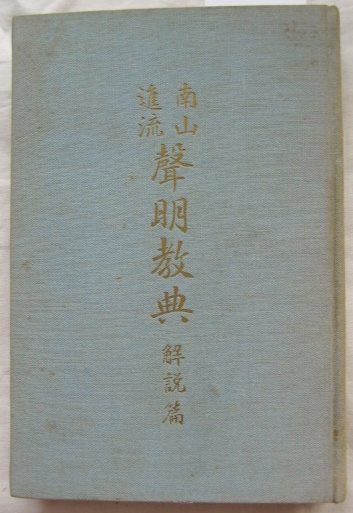 南山
進流
聲明教典
解説篇